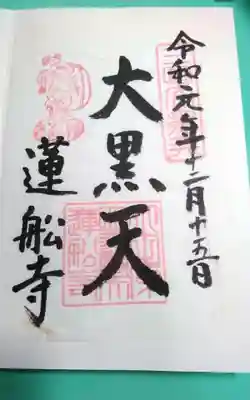 令和元年十二月十五日
大黒天
蓮船寺